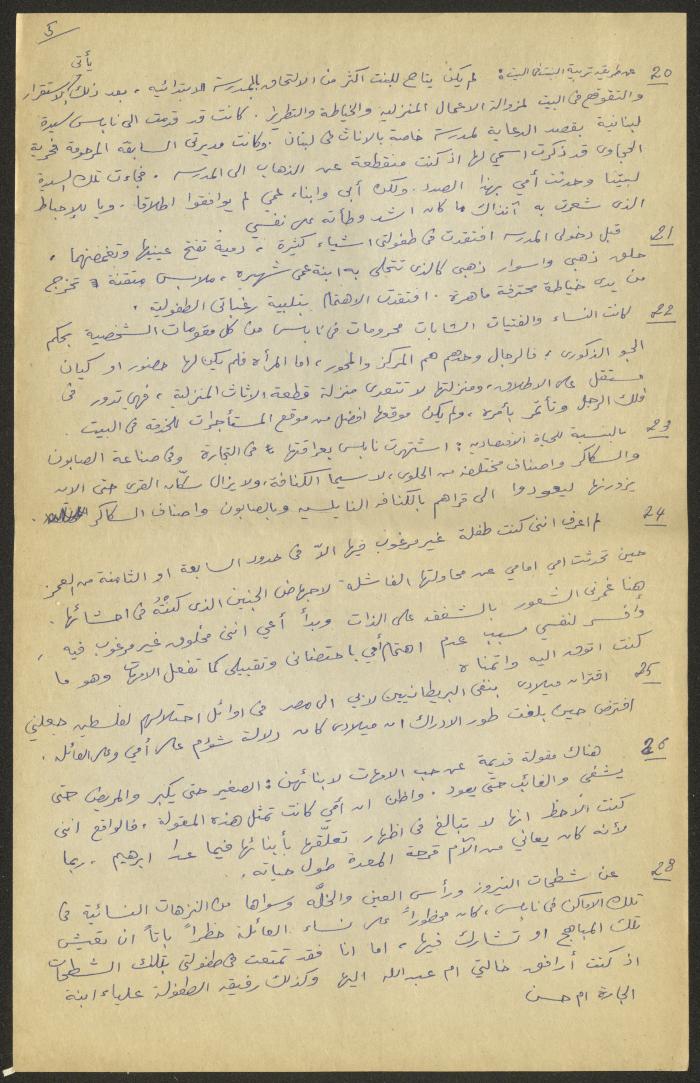 5
20 عن طريقة تربية البنت في البيت: لم يكن يتاح للبنت اكثر من الالتحاق بالمدرسة الابتدائية، بعد ذلك يأتي الاستقرار
والتقوقع في البيت لمزاولة الاعمال المنزلية والخياطة والتطريز. كانت قد قدمت الى نابلس سيدة
لبنانية بقصد الدعاية لمدرسة خاصة بالاناث في لبنان. وكانت مديرتي السابقة المرحومة فخرية
الحجاوي قد ذكرت اسمي لها اذ كنت منقطعة عن الذهاب الى المدرسة. فجاءت تلك السيدة
لبيتنا وحدثت أمي بهذا الصدد. ولكن أبي وابناء عمي لم يوافقوا اطلاقا. ويا للإحباط
الذي شعرت به آنذاك ما كان اشد وطأته على نفسي
21 قبل دخولي المدرسة افتقدت في طفولتي اشياء كثيرة: دمية تفتح عينيها وتغمضهما،
حلق ذهبي واسوار ذهبي كالذي تتحلى به ابنة عمي شهيرة، ملابس متقنة تخرج
من يدي خياطة محترفة ماهرة. افتقدت الاهتمام بتلبية رغباتي الطفولية.
22 كانت النساء والفتيات الشابات محرومات في نابلس من كل مقومات الشخصية بحكم
الجو الذكوري، فالرجال وحدهم هم المركز والمحور، اما المرأة فلم يكن لها حضور او كيان
مستقل على الاطلاق، ومنزلتها لا تتعدى منزلة قطعة الاثاث المنزلية، فهي تدور في
فلك الرجل وتأتمر بأمره، ولم يكن موقعها افضل من موقع المستأجرات للخدمة في البيت.
23 بالنسبة للحياة الاقتصادية: اشتهرت نابلس بعراقتها في التجارة وفي صناعة الصابون
والسكاكر واصناف مختلفة من الحلوى، لا سيما الكنافة، ولا يزال سكّان القرى حتى الان
يزورنها ليعودوا الى قراهم بالكنافة النابلسية وبالصابون واصناف السكاكر.
24 لم اعرف انني كنت طفلة غير مرغوب فيها الاّ في حدود السابعة او الثامنة من العمر
حين تحدثت امي امامي عن محاولتها الفاشلة لاجهاض الجنين الذي كنتُهُ في احشائها.
هنا غمرني الشعور بالشفقة على الذات وبدأ أعي انني مخلوق غير مرغوب فيه،
وأفسر لنفسي سبب عدم اهتمام أمي باحتضاني وتقبيلي كما تفعل الامهات وهو ما
كنت اتوق اليه واتمناه
25 اقتران ميلادي بنفي البريطانيين لابي الى مصر في اوائل احتلالهم لفلسطين جعلني
افترض حين بلغت طور الادراك ان ميلادي كان دلالة شؤم على أمي وعلى العائلة.
26 هناك مقولة قديمة عن حب الامهات لابنائهن: الصغير حتى يكبر والمريض حتى
يشفى والغائب حتى يعود. واظن ان أمي كانت تمثل هذه المقولة، فالواقع انني
كنت الاحظ انها لا تبالغ في اظهار تعلّقها بأبنائها فيما عدا ابرهيم. ربما
لأنه كان يعاني من آلام قرحة المعدة طول حياته.
28 عن شطحات النيروز ورأس العين والحلّه وسواها من النزهات النسائية في
تلك الاماكن في نابلس، كان محظوراً على نساء العائلة حظراً باتاً ان تعيش
تلك المباهج او تشارك فيها، اما انا فقد تمتعت في طفولتي بتلك الشطحات
اذ كنت أرافق خالتي ام عبدالله اليها وكذلك رفيقة الطفولة علياء ابنة
الجارة ام حسن